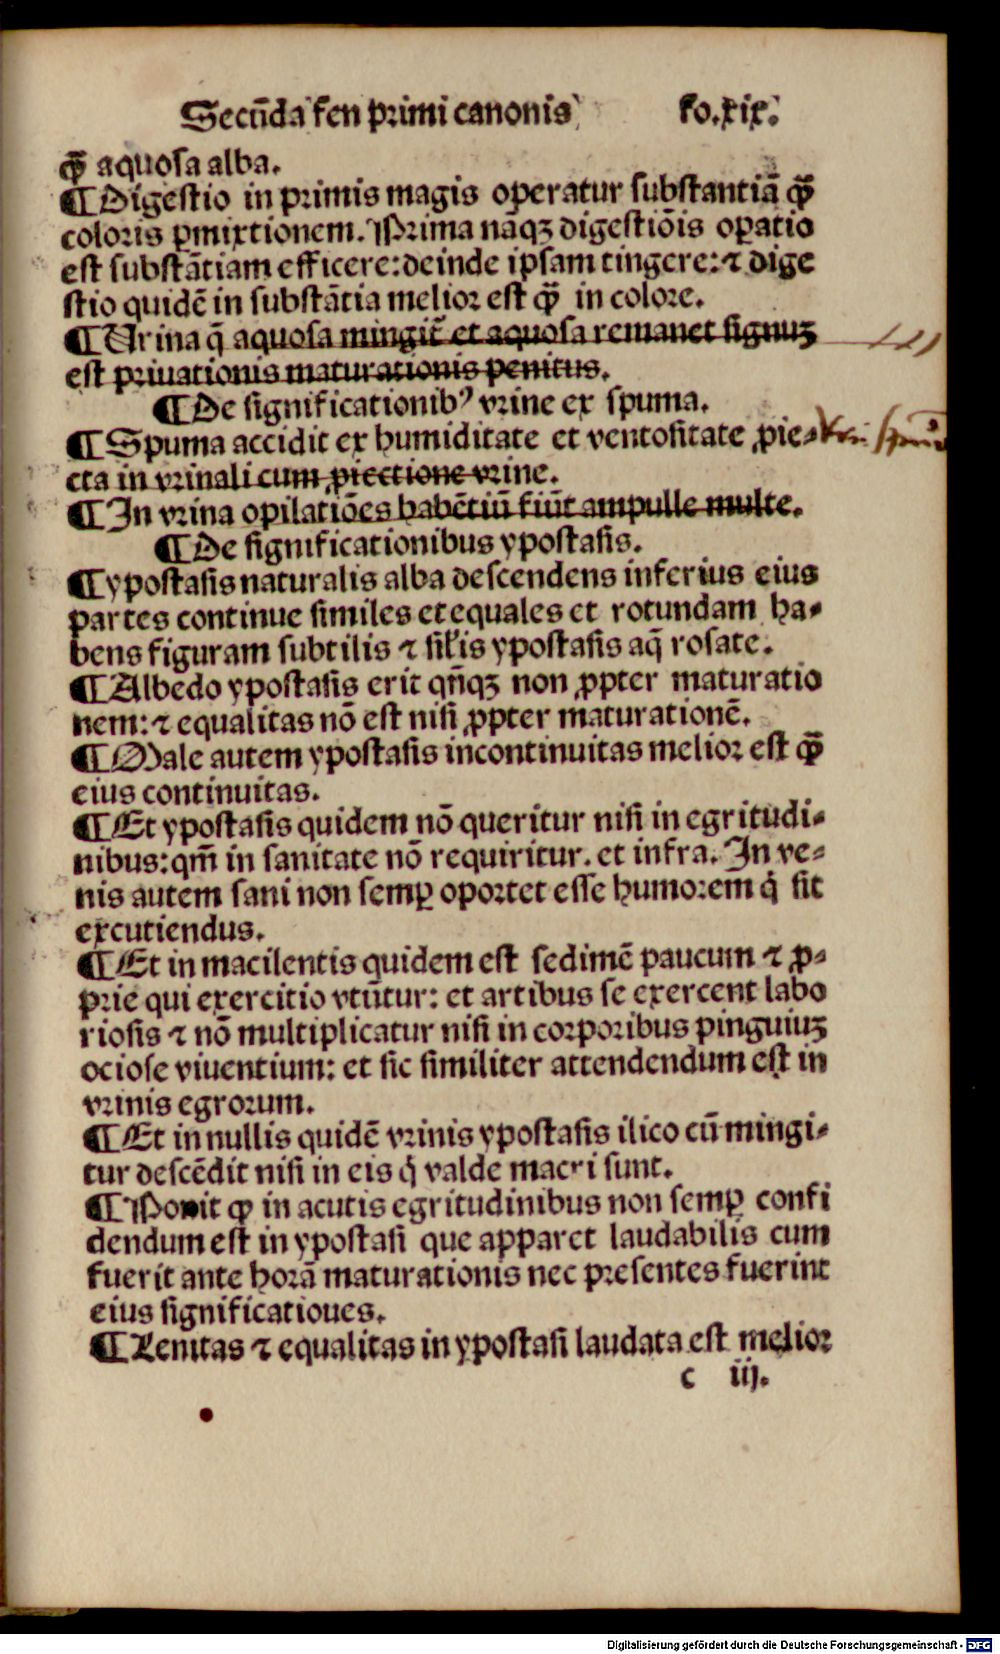 Secūda fen primi canonis fo.xix.
ꝙ̄ aquosa alba.
¶ Digestio in primis magis operatur substantiā ꝙ̄
coloris ꝑmixtionem. Prima nāqꝫ digestiōis oꝑatio
est substātiam efficere: deinde ipsam tingere: ⁊ dige
stio quidē in substātia melior est ꝙ̄ in colore.
¶ Urina q̄ aquosa mingit̄ et aquosa remanet signuꝫ
est priuationis maturationis penitus.
¶ De significationibꝰ vrine ex spuma.
¶ Spuma accidit ex humiditate et ventositate ꝓie-
cta in vrinali cum ꝓiectione vrine.
¶ In vrina opilatiōes habētiū fiūt ampulle multe.
¶ De significationibus ypostasis.
¶ ypostasis naturalis alba descendens inferius eius
partes continue similes et equales et rotundam ha-
bens figuram subtilis ⁊ sil̓is ypostasis aq̄ rosate.
¶ Albedo ypostasis erit qn̄qꝫ non ꝓpter maturatio
nem: ⁊ equalitas nō est nisi ꝓpter maturationē.
¶ Male autem ypostasis incontinuitas melior est ꝙ̄
eius continuitas.
¶ Et ypostasis quidem nō queritur nisi in egritudi-
nibus: qm̄ in sanitate nō requiritur. et infra. In ve-
nis autem sani non semꝑ oportet esse humorem q̇ sit
excutiendus.
¶ Et in macilentis quidem est sedimē paucum ⁊ ꝓ-
prie qui exercitio vtūtur: et artibus se exercent labo
riosis ⁊ nō multiplicatur nisi in corporibus pinguiuꝫ
ociose viuentium: et sic similiter attendendum est in
vrinis egrorum.
¶ Et in nullis quidē vrinis ypostasis ilico cū mingi-
tur descēdit nisi in eis q̇ valde macri sunt.
¶ Ponit ꝙ in acutis egritudinibus non semꝑ confi
dendum est in ypostasi que apparet laudabilis cum
fuerit ante horā maturationis nec presentes fuerint
eius significatioues.
¶ Lenitas ⁊ equalitas in ypostasi laudata est melior
c iij.
Digitalisierung gefördert durch die Deutsche Forschungsgemeinschaft - DFG